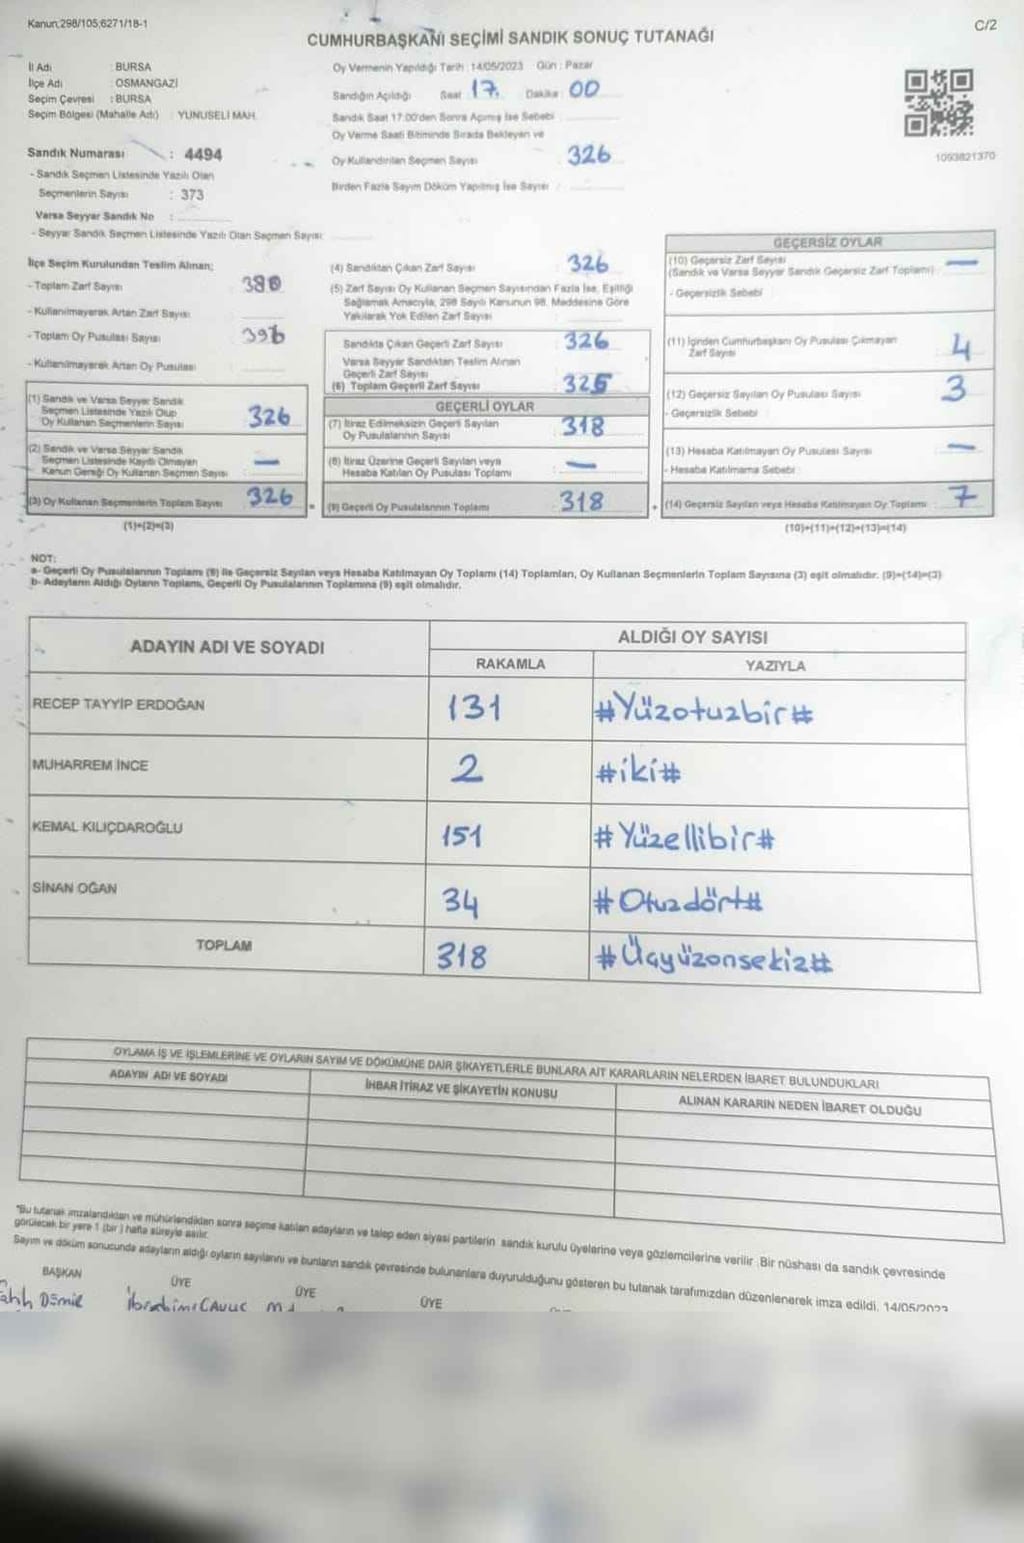 Kanun;298/105,6271/18-1
C/2
CUMHURBAŞKANI SEÇİMİ SANDIK SONUÇ TUTANAĞI
İl Adı : BURSA
İlçe Adı : OSMANGAZİ
Seçim Çevresi : BURSA
Seçim Bölgesi (Mahalle Adı) : YUNUSELİ MAH.
Oy Vermenin Yapıldığı Tarih : 14/05/2023 Gün : Pazar
Sandığın Açıldığı Saat : 17. Dakika : 00
Sandık Saat 17:00'den Sonra Açımış İse Sebebi
Oy Verme Saati Bitiminde Sırada Bekleyen ve
Oy Kullandırılan Seçmen Sayısı 326
Birden Fazla Sayım Döküm Yapılmış İse Sayısı :
1093821370
Sandık Numarası : 4494
- Sandık Seçmen Listesinde Yazılı Olan
Seçmenlerin Sayısı : 373
Varsa Seyyar Sandık No :
- Seyyar Sandık Seçmen Listesinde Yazılı Olan Seçmen Sayısı:
İlçe Seçim Kurulundan Teslim Alınan;
- Toplam Zarf Sayısı 380
- Kullanılmayarak Artan Zarf Sayısı:
- Toplam Oy Pusulası Sayısı
- Kullanılmayarak Artan Oy Pusulası
(1) Sandık ve Varsa Seyyar Sandık
Seçmen Listesinde Yazılı Olup
Oy Kullanan Seçmenlerin Sayısı 326
(2) Sandık ve Varsa Seyyar Sandık
Seçmen Listesinde Kayıtlı Olmayan
Kanun Gereği Oy Kullanan Seçmen Sayısı : —
(3) Oy Kullanan Seçmenlerin Toplam Sayısı 326
(1)+(2)=(3)
(4) Sandıktan Çıkan Zarf Sayısı 326
(5) Zarf Sayısı Oy Kullanan Seçmen Sayısından Fazla İse, Eşitliği
Sağlamak Amacıyla, 298 Sayılı Kanunun 98. Maddesine Göre
Yakılarak Yok Edilen Zarf Sayısı :
Sandıkta Çıkan Geçerli Zarf Sayısı 326
Varsa Seyyar Sandıktan Teslim Alınan
Geçerli Zarf Sayısı
(6) Toplam Geçerli Zarf Sayısı 326
GEÇERLİ OYLAR
(7) İtiraz Edilmeksizin Geçerli Sayılan
Oy Pusulalarının Sayısı 318
(8) İtiraz Üzerine Geçerli Sayılan veya
Hesaba Katılan Oy Pusulası Toplamı : —
(9) Geçerli Oy Pusulalarının Toplamı 318
GEÇERSİZ OYLAR
(10) Geçersiz Zarf Sayısı
(Sandık ve Varsa Seyyar Sandık Geçersiz Zarf Toplamı) : —
- Geçersizlik Sebebi
(11) İçinden Cumhurbaşkanı Oy Pusulası Çıkmayan
Zarf Sayısı 4
(12) Geçersiz Sayılan Oy Pusulası Sayısı 3
- Geçersizlik Sebebi :
(13) Hesaba Katılmayan Oy Pusulası Sayısı —
- Hesaba Katılmama Sebebi :
(14) Geçersiz Sayılan veya Hesaba Katılmayan Oy Toplamı 7
(10)+(11)+(12)+(13)=(14)
NOT:
a- Geçerli Oy Pusulalarının Toplamı (9) ile Geçersiz Sayılan veya Hesaba Katılmayan Oy Toplamı (14) Toplamları, Oy Kullanan Seçmenlerin Toplam Sayısına (3) eşit olmalıdır. (9)+(14)=(3)
b- Adayların Aldığı Oyların Toplamı, Geçerli Oy Pusulalarının Toplamına (9) eşit olmalıdır.
ADAYIN ADI VE SOYADI
ALDIĞI OY SAYISI
RAKAMLA YAZIYLA
RECEP TAYYİP ERDOĞAN 131 #Yüzotuzbir#
MUHARREM İNCE 2 #iki#
KEMAL KILIÇDAROĞLU 151 #Yüzellibir#
SİNAN OĞAN 34 #Otuzdört#
TOPLAM 318 #Üçyüzonsekiz#
OYLAMA İŞ VE İŞLEMLERİNE VE OYLARIN SAYIM VE DÖKÜMÜNE DAİR ŞİKAYETLERLE BUNLARA AİT KARARLARIN NELERDEN İBARET BULUNDUKLARI
ADAYIN ADI VE SOYADI İHBAR İTİRAZ VE ŞİKAYETİN KONUSU ALINAN KARARIN NEDEN İBARET OLDUĞU
*Bu tutanak imzalandıktan ve mühürlendikten sonra seçime katılan adayların ve talep eden siyasi partilerin sandık kurulu üyelerine veya gözlemcilerine verilir. Bir nüshası da sandık çevresinde
görülecek bir yere 1 (bir) hafta süreyle asılır.
Sayım ve döküm sonucunda adayların aldığı oyların sayılarını ve bunların sandık çevresinde bulunanlara duyurulduğunu gösteren bu tutanak tarafımızdan düzenlenerek imza edildi. 14/05/2023
BAŞKAN ÜYE ÜYE ÜYE